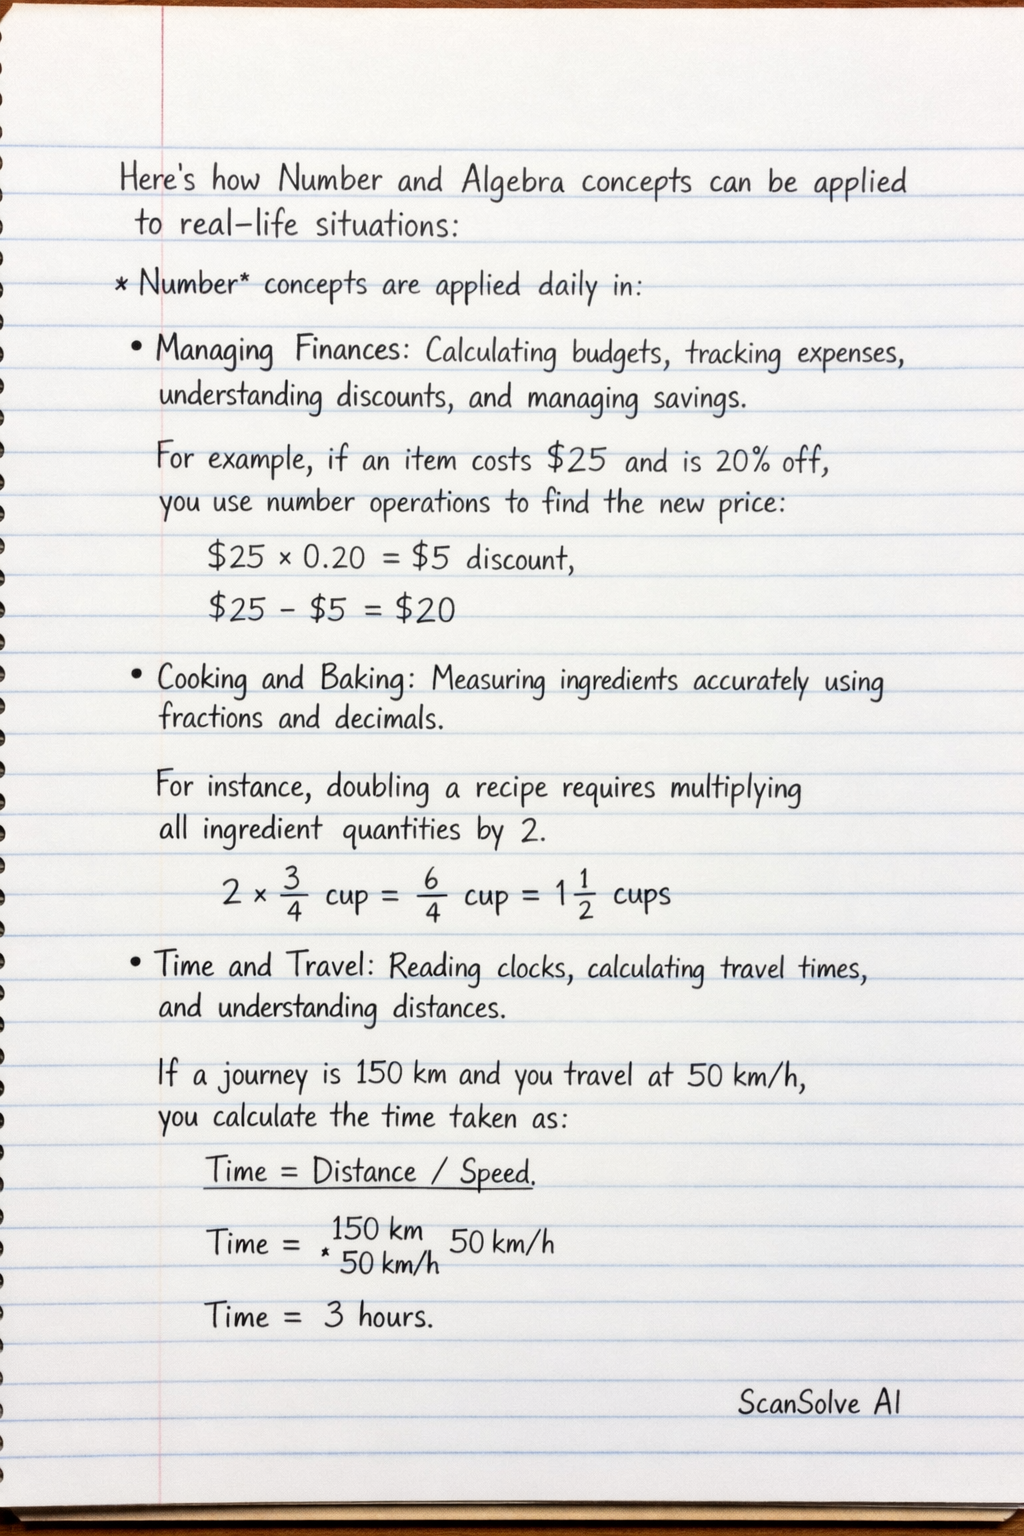 Here's how Number and Algebra concepts can be applied
to real-life situations:
* Number* concepts are applied daily in:
• Managing Finances: Calculating budgets, tracking expenses,
understanding discounts, and managing savings.
For example, if an item costs $25 and is 20% off,
you use number operations to find the new price:
$25 × 0.20 = $5 discount,
$25 - $5 = $20
• Cooking and Baking: Measuring ingredients accurately using
fractions and decimals.
For instance, doubling a recipe requires multiplying
all ingredient quantities by 2.
2 × 3/4 cup = 6/4 cup = 1 1/2 cups
• Time and Travel: Reading clocks, calculating travel times,
and understanding distances.
If a journey is 150 km and you travel at 50 km/h,
you calculate the time taken as:
Time = Distance / Speed.
Time = 150 km * 50 km/h 50 km/h
Time = 3 hours.
ScanSolve AI